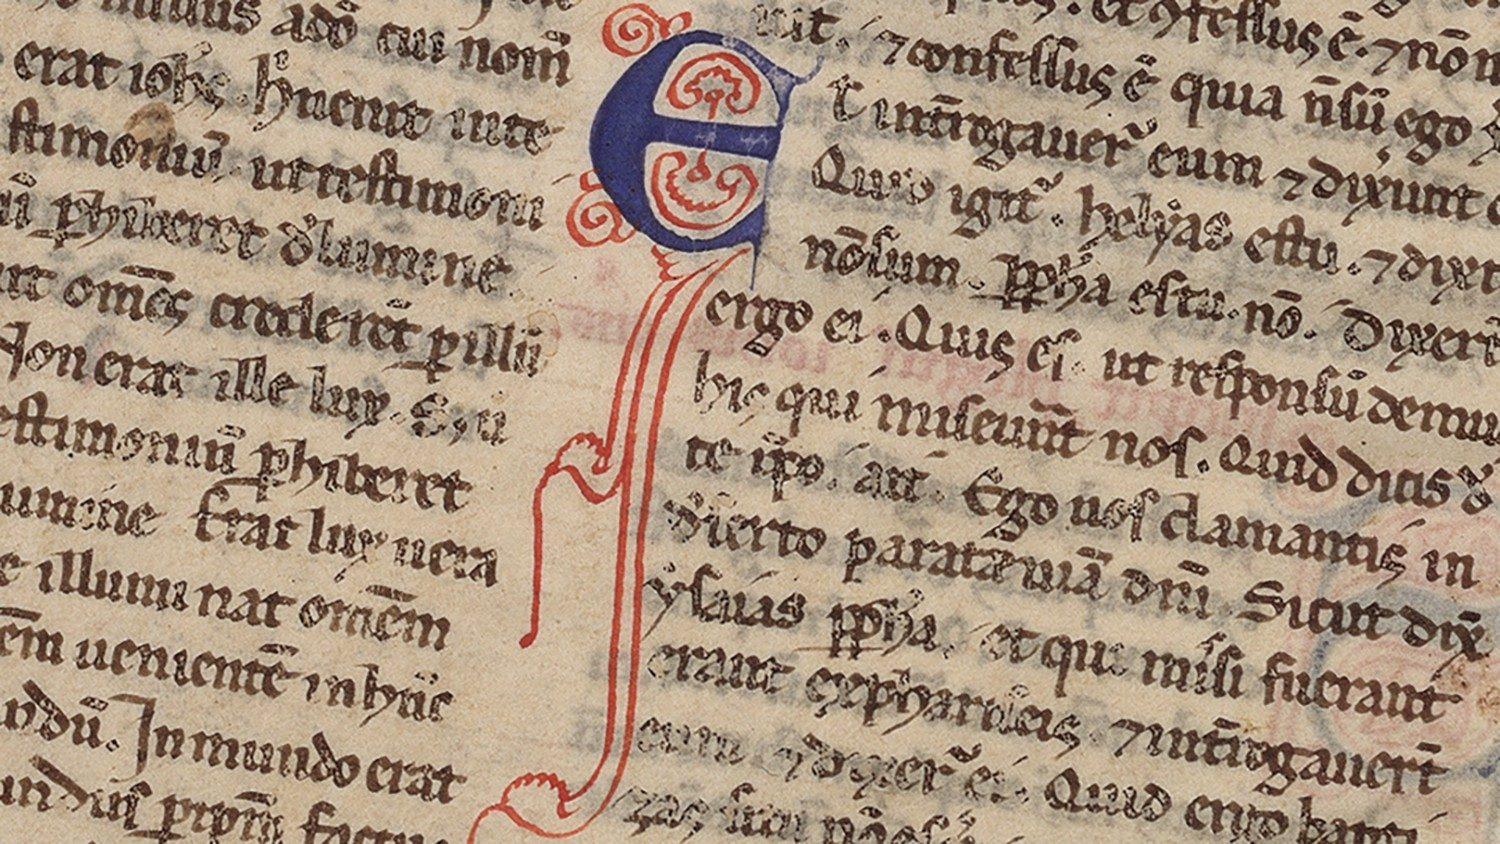 missus adō cui nom̄
erat iohs. hͥ uenit inte
stimoniū ut testimoni
ū ꝑhiberet dͤ lumine
ut om̄es crederēt ꝑ illū
Non erat ille lux. S; u
estimoniū ꝑhiberet
lumine Erat lux uera
e illuminat om̄em
em̄ uenientē in hūc
undū. In mundo erat
undus ꝑ ip̄m̄ factu
uit. ⁊ confessus ē. ⁊ nōn
⁊ confessus ē quia n̄ sū ego
t int̄rogauer̄ eum ⁊ dixiunt
Quid igit̄. helyas es tu. ⁊ dixt
nō sum. ꝓpħa es tu. nō. Dixer̄t
ergo ei. Quis es. ut responsū demus
his qui miserunt̄ nos. Quid dicis d
te ip̄o. ait. Ego uox clamantis in
dͤserto parate uiā dnī. Sicut dix̄
ysaias ꝓpħa. et qui missi fuerant
erant ex phariseis. ⁊ int̄rogauer̄t
eum ⁊ dixer̄ ei. Quid ergo bapti
zas si tu nō es